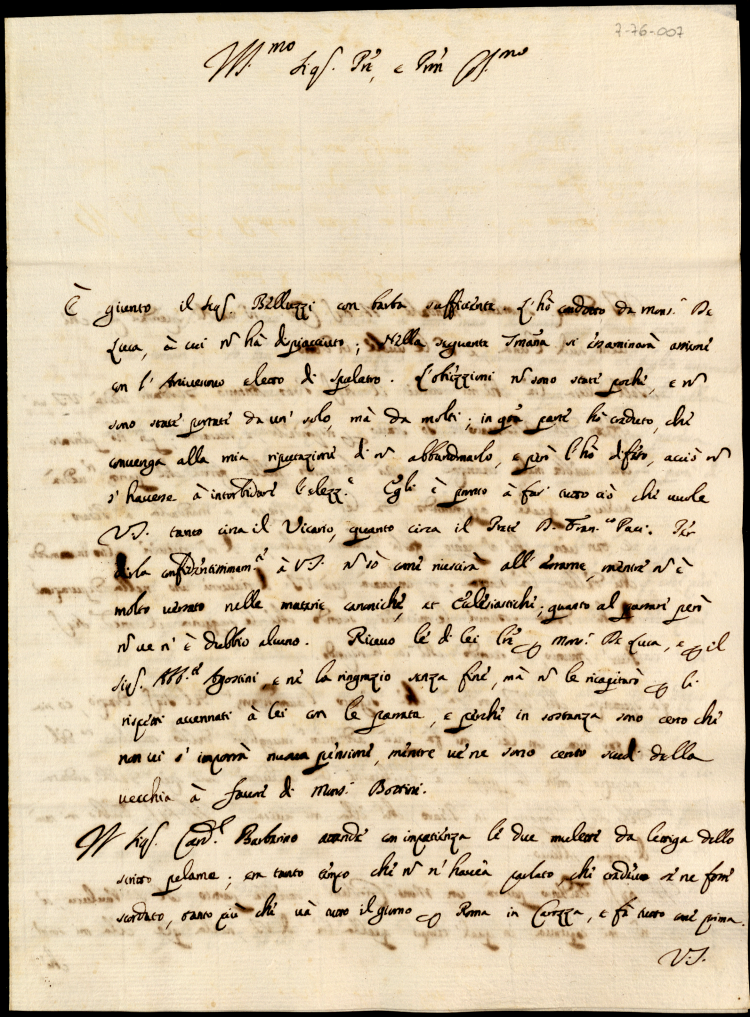 7-76-007
Ill.mo Sig.r P're, e P'rôn Col.mo
È giunto il Sig.r Belluzzi con barba sufficiente. L'hò condotto da Mons.r De
Luca, à cui nõ hà dispiacciuto; Nella seguente Smãna si essaminarà assieme
con l'Arcivescovo eletto di Spalatro. L'obiezzioni nõ sono state poche, e nõ
sono state portate da un' solo, mà da molti; in q̃sta parte hò creduto, che
convenga alla mia riputazione di nõ abbandonarlo, e però l'hò difeso, acciò nõ
s'havesse à intorbidare l'elezz.e Egli è pronto à far' tutto ciò che vuole
V.S. tanto circa il Vicario, quanto circa il Prete D. Fran.co Paci. Per
dirla confidentissimam.te à V.S. nõ sò come riescirà all'essame, mentre nõ è
molto versato nelle materie canoniche, et Ecclesiastiche; quanto al passare però
nõ ve n'è dubbio alcuno. Ricevo le di lei l're p Mons.r De Luca, e p il
Sig.r Abb.te Agostini e ne la ringrazio senza fine, mà nõ le ricapitarò p li
rispetti accennati à lei con le passata, e perche in sostanza sono certo che
non vi s'imporrà nuova pensione, mentre ve ne sono cento scudi della
vecchia à favore di Mons.r Bottini.
Il Sig.r Card.l Barbarino attende con impatienza le due mulette da lettiga dello
scritto pelame; era tanto tempo che nõ n'haveva parlato, che credevo se ne fosse
scordato, tanto più che và tutto il giorno p Roma in Carozza, e fà tutto come prima.
V.S.